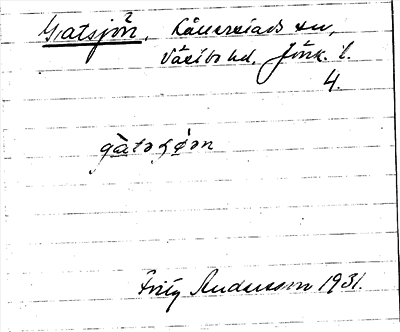 Gatsjön, Kållerstads sn,
Västbo hd. Jönk. l.
4.
gàtəʂǿən
Fritz Andersson 1931.